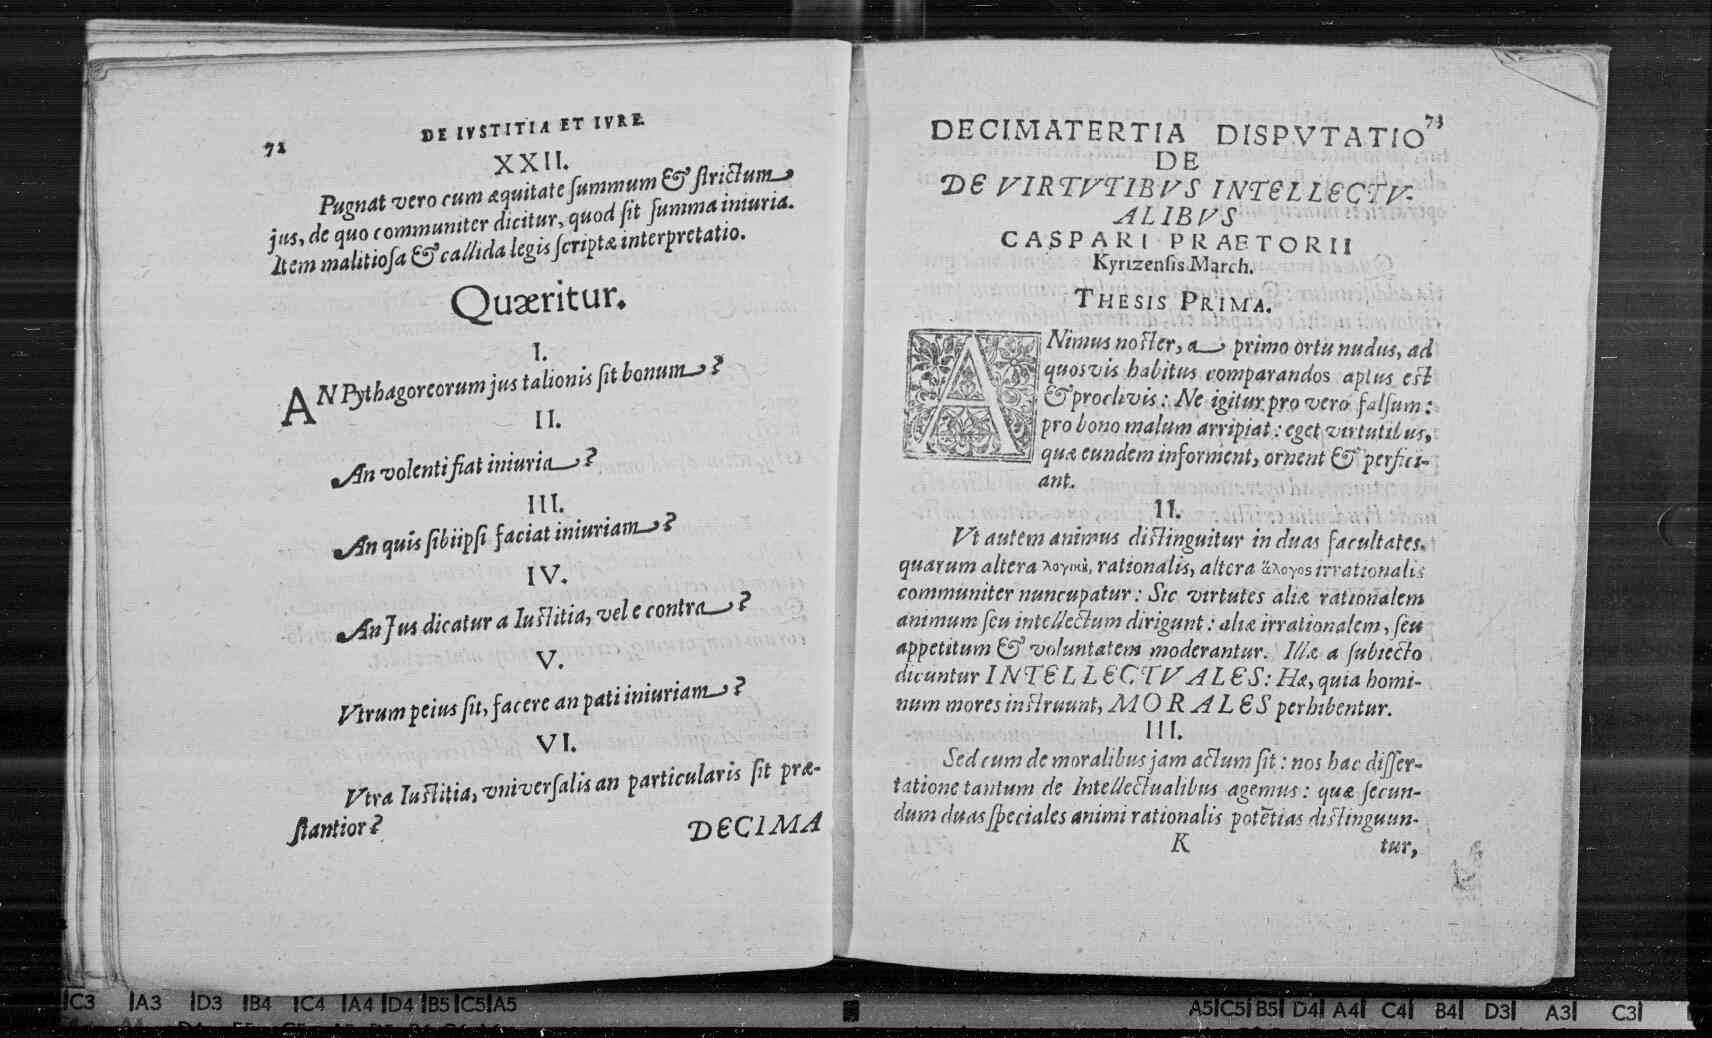 72
DE IVSTITIA ET IVRE.
XXII.
Pugnat vero cum æquitate ſummum & ſtrictum
jus, de quo communiter dicitur, quod ſit ſumma iniuria.
Item malitioſa & callida legis ſcriptæ interpretatio.
Quæritur.
I.
AN Pythagoreorum jus talionis ſit bonum?
II.
An volenti fiat iniuria?
III.
An quis ſibiipſi faciat iniuriam?
IV.
An Jus dicatur a Iuſtitia, vel e contra?
V.
Vtrum peius ſit, facere an pati iniuriam?
VI.
Vtra Iuſtitia, vniverſalis an particularis ſit præ-
ſtantior?
DECIMA
73
DECIMATERTIA DISPVTATIO
DE
DE VIRTVTIBVS INTELLECTV-
ALIBVS
CASPARI PRAETORII
Kyrizenſis March.
THESIS PRIMA.
ANimus noſter, a primo ortu nudus, ad
quosvis habitus comparandos aptus eſt
& proclivis: Ne igitur pro vero falſum:
pro bono malum arripiat: eget virtutibus,
quæ eundem informent, ornent & perfici-
ant.
II.
Vt autem animus diſtinguitur in duas facultates,
quarum altera λογικὴ, rationalis, altera ἄλογος irrationalis
communiter nuncupatur: Sic virtutes aliæ rationalem
animum ſeu intellectum dirigunt: aliæ irrationalem, ſeu
appetitum & voluntatem moderantur. Illæ a ſubiecto
dicuntur INTELLECTVALES: Hæ, quia homi-
num mores inſtruunt, MORALES perhibentur.
III.
Sed cum de moralibus jam actum ſit: nos hac diſſer-
tatione tantum de Intellectualibus agemus: quæ ſecun-
dum duas ſpeciales animi rationalis potētias diſtinguun-
K
tur,
C3 A3 D3 B4 C4 A4 D4 B5 C5 A5
A5 C5 B5 D4 A4 C4 B4 D3 A3 C3